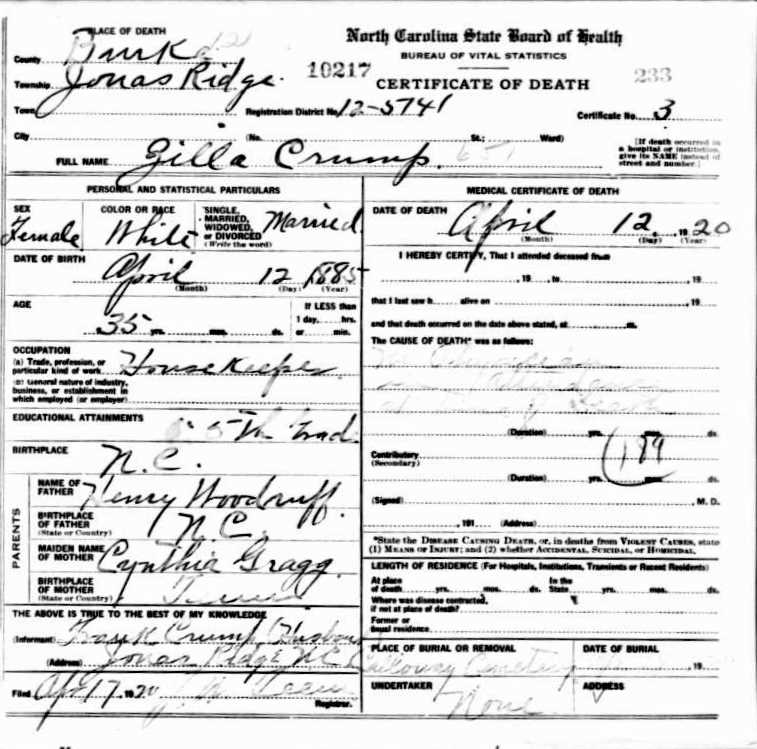 PLACE OF DEATH
County Burke
Township Jonas Ridge
Town
City
North Carolina State Board of Health
BUREAU OF VITAL STATISTICS
10217
CERTIFICATE OF DEATH
233
Registration District No. 12-5741
Certificate No. 3
(No. St.; Ward)
[If death occurred in
a hospital or institution,
give its NAME instead of
street and number.]
FULL NAME Zilla Crump.
PERSONAL AND STATISTICAL PARTICULARS
SEX
Female
COLOR OR RACE
White
SINGLE,
MARRIED,
WIDOWED,
or DIVORCED
(Write the word)
Married
DATE OF BIRTH
April 12 1885
(Month) (Day) (Year)
AGE
35 yrs. mos. ds.
If LESS than
1 day, hrs.
or min.
OCCUPATION
(a) Trade, profession, or
particular kind of work
Housekeeper
(b) General nature of industry,
business, or establishment in
which employed (or employer)
EDUCATIONAL ATTAINMENTS
5th Grad.
BIRTHPLACE
N.C.
PARENTS
NAME OF
FATHER
Henry Woodruff.
BIRTHPLACE
OF FATHER
(State or Country)
N.C.
MAIDEN NAME
OF MOTHER
Cynthia Gragg.
BIRTHPLACE
OF MOTHER
(State or Country)
THE ABOVE IS TRUE TO THE BEST OF MY KNOWLEDGE
(Informant) Crump (Husband)
(Address) Jonas Ridge N.C.
Filed Apr 17 1920
Registrar.
MEDICAL CERTIFICATE OF DEATH
DATE OF DEATH
April 12, 1920
(Month) (Day) (Year)
I HEREBY CERTIFY, That I attended deceased from
, 19 to , 19
that I last saw h alive on , 19
and that death occurred on the date above stated, at m.
The CAUSE OF DEATH* was as follows:
(Duration) yrs. mos. ds.
Contributory
(Secondary)
189
(Duration) yrs. mos. ds.
(Signed) M. D.
, 191 (Address)
*State the DISEASE CAUSING DEATH, or, in deaths from VIOLENT CAUSES, state
(1) MEANS OF INJURY; and (2) whether ACCIDENTAL, SUICIDAL, or HOMICIDAL.
LENGTH OF RESIDENCE (For Hospitals, Institutions, Transients or Recent Residents)
At place
of death yrs. mos. ds.
In the
State yrs. mos. ds.
Where was disease contracted,
if not at place of death?
Former or
usual residence
PLACE OF BURIAL OR REMOVAL
Cemetery
DATE OF BURIAL
, 19
UNDERTAKER
None
ADDRESS